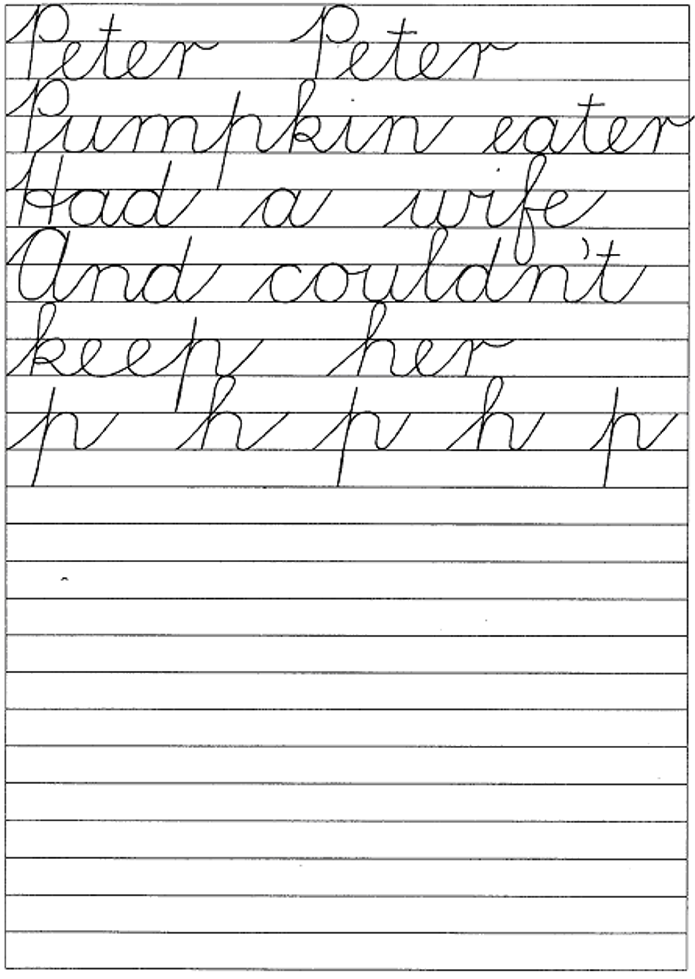 Peter Peter
Pumpkin eater
Had a wife
And couldn't
keep her
p h p h p